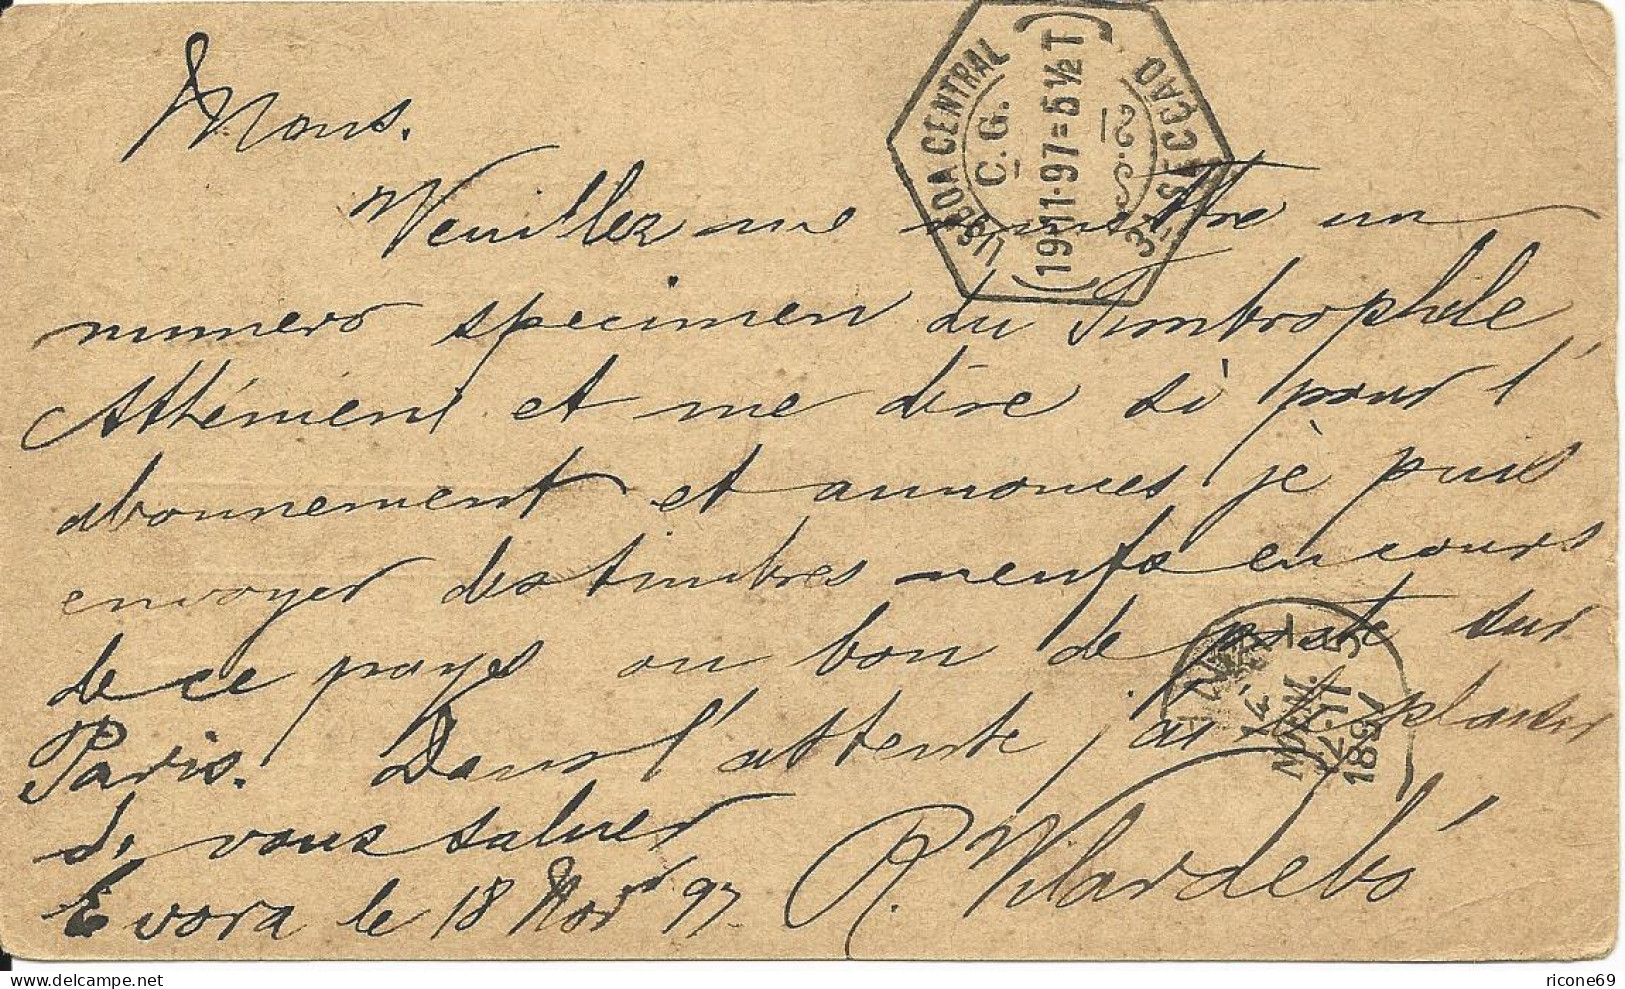 Mons.
LISBOA CENTRAL
C.G.
19·11·97=5½T
3ª SECÇÃO
Veuillez me un
numero specimen du Timbrophile
et me dire si pour l'
abonnement et annonces je puis
envoyer des timbres neufs en cours
de ce pays ou bon de poste sur
Paris. Dans l'attente, j'ai le plaisir
di vous saluer
Evora le 18 Nov 97
R. Vilardebó
1897
ricone69